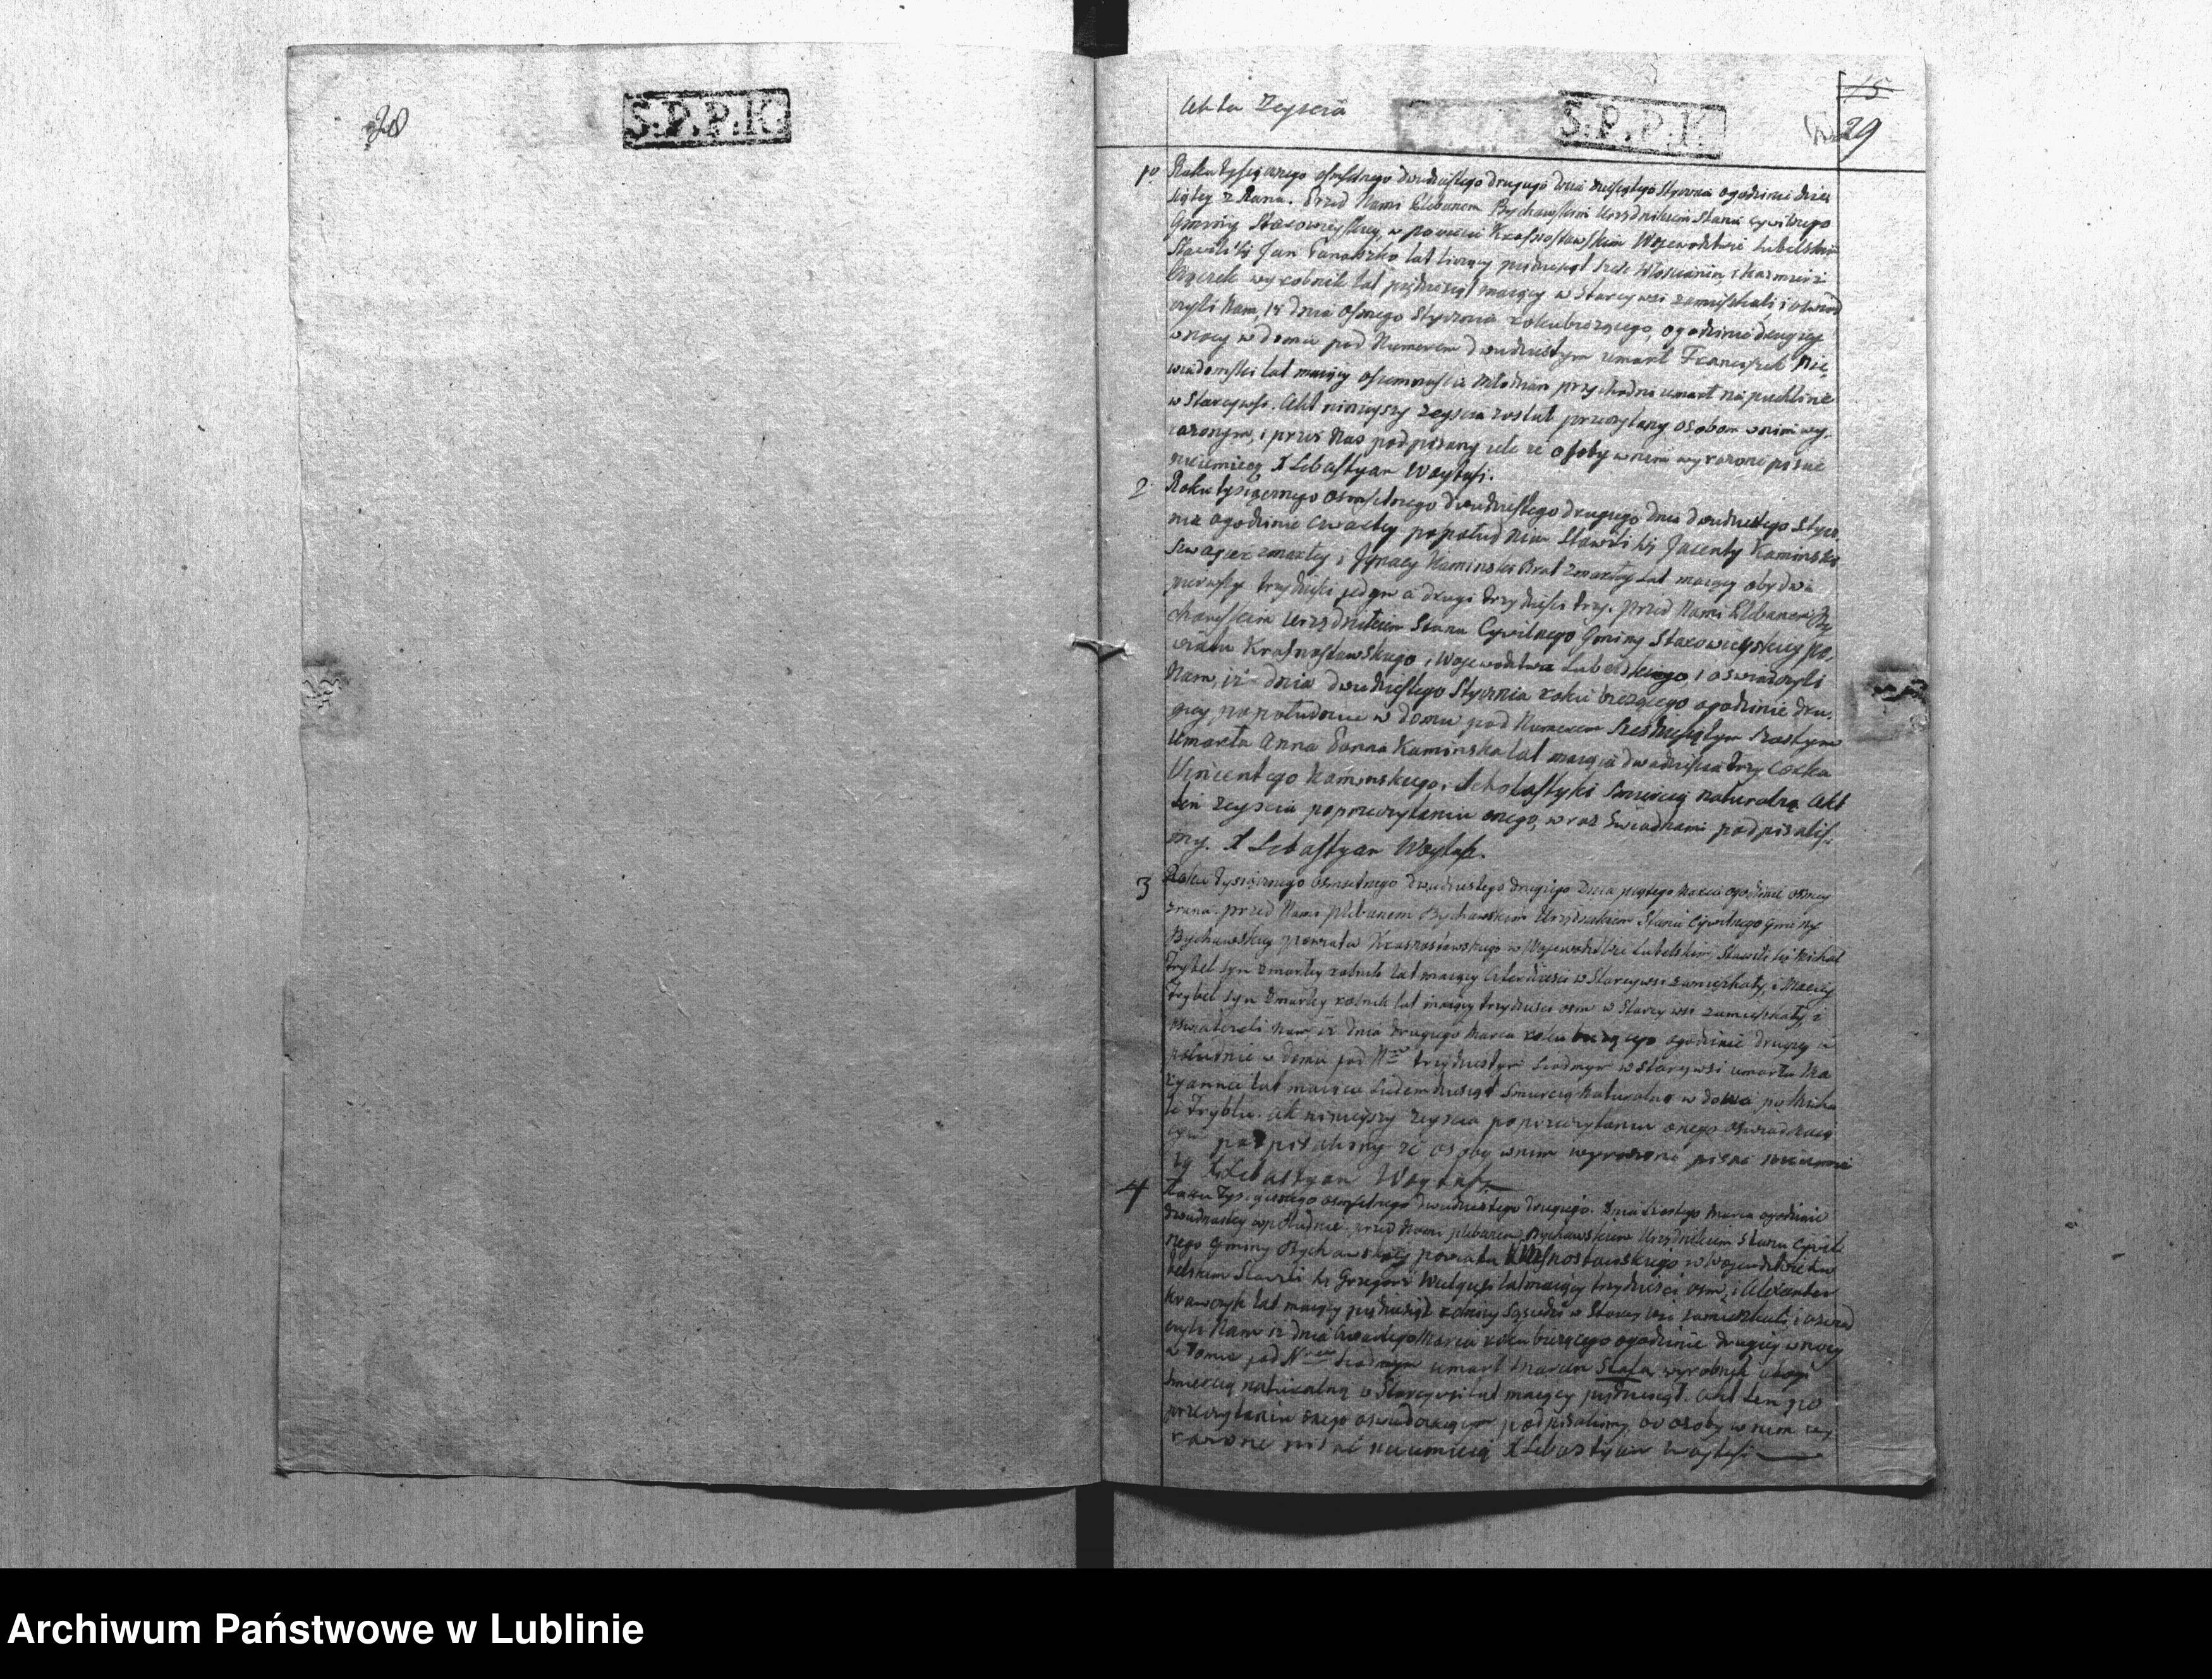 28
S.P.P.K.
Akta Zeyscia
S.P.P.K.
15
29
1o Roku tysiącznego osmsetnego dwudziestego drugiego dnia dziesiątego Stycznia o godzinie dzie
siątey z Rana. Przed Nami Plebanem Bychawskim Urzędnikiem Stanu Cywilnego
Gminy Starowieyskiey, w powiecie Krasnostawskim Województwie Lubelskim
Stawili się Jan lat liczący pięćdziesiąt Włościanin, i Kazmierz
wyrobnik lat pięćdziesiąt maiący w Starey wsi zamieszkali, i oświad
czyli Nam, iż dnia osmego Stycznia roku bieżącego, o godzinie drugiey
w nocy w domu pod Numerem dwudziestym umarł Franciszek Nie
wiadomski lat maiący osiemnaście Młodzian przychodni umarł na puchline
w Starey wsi. Akt ninieyszy zeyscia został przeczytany osobom w nim wy
rażonym, i przez Nas podpisany ile że osoby w nim wyrażone pisać
nieumieią X Sebastyan Woytasz.
2 Roku tysiącznego osmsetnego dwudziestego drugiego dnia dwudziestego Stycz
nia o godzinie czwartey popołudniu Stawili się Jacenty Kaminski
szwagier zmarłey i Ignacy Kaminski Brat zmarłey Lat maiący obydwa
pierwszy trzydzieści jeden a drugi trzydzieści trzy. przed Nami Plebanem By
chawskim Urzędnikiem Stanu Cywilnego Gminy Starowieyskiey Po
wiatu Krasnostawskiego, Województwa Lubelskiego i oswiadczyli
Nam, iż dnia dwudziestego Stycznia roku bieżącego o godzinie dru
giey popołudniu w domu pod Numerem Sześdziesiątym Szostym
Umarła Anna Panna Kaminska lat maiąca dwadzieścia trzy Corka
Vincentego Kaminskiego i Scholastyki Smiercią naturalną Akt
ten zeyscia poprzeczytaniu onego, wraz swiadkami podpisalis
my. X Sebastyan Woytasz.
3 Roku tysiącznego osmsetnego dwudziestego drugiego Dnia piątego Marca o godzinie osmey
zrana. przed Nami plebanem Bychawskim Urzędnikiem Stanu Cywilnego Gminy
Bychawskiey powiatu Krasnostawskiego w Województwie Lubelskim, Stawili się Michał
Trybel syn zmarłey rolnik lat maiący czterdzieści w Starey wsi zamieszkały, i Maciey
Trybel syn zmarłey rolnik lat maiący trzydzieści osm w Starey wsi zamieszkały i
oswiadczeli Nam iż dnia drugiego Marca roku bieżącego o godzinie drugiey w
południe w domu pod Nrem trzydziestym siodmym w Starey wsi umarła Ma
ryanna lat maiąca siedemdziesiąt smiercią naturalną w dowa po Micha
le Tryblu. akt ninieyszy zeyscia poprzeczytaniu onego oswiadczaią
cym podpisalismy że osoby w nim wyrażone pisać nieumie
ią X Sebastyan Woytasz
4 Roku Tysiącznego osmsetnego dwudziestego drugiego. Dnia szostego Marca o godzinie
dwunastey w południe. przed Nami plebanem Bychawskim Urzędnikiem Stanu Cywil
nego Gminy Bychawskiey powiatu Krasnostawskiego w Województwie Lu
belskim Stawili się Grzegorz lat maiący trzydzieści osm, i Alexander
Krawczyk lat maiący pięćdziesiąt rolnicy Sąsiedzi w Starey wsi zamieszkali, i oswiad
czyli Nam iż dnia czwartego Marca roku bieżącego o godzinie drugiey w nocy
w Domu pod Nrem siodmym umarł Marcin wyrobnik ubogi
smiercią naturalną w Starey wsi lat maiący pięćdziesiąt. akt ten po
przeczytaniu onego oswiadczaiącym podpisalismy, bo osoby w nim wy
rażone pisać nieumieią X Sebastyan Woytasz
Archiwum Państwowe w Lublinie